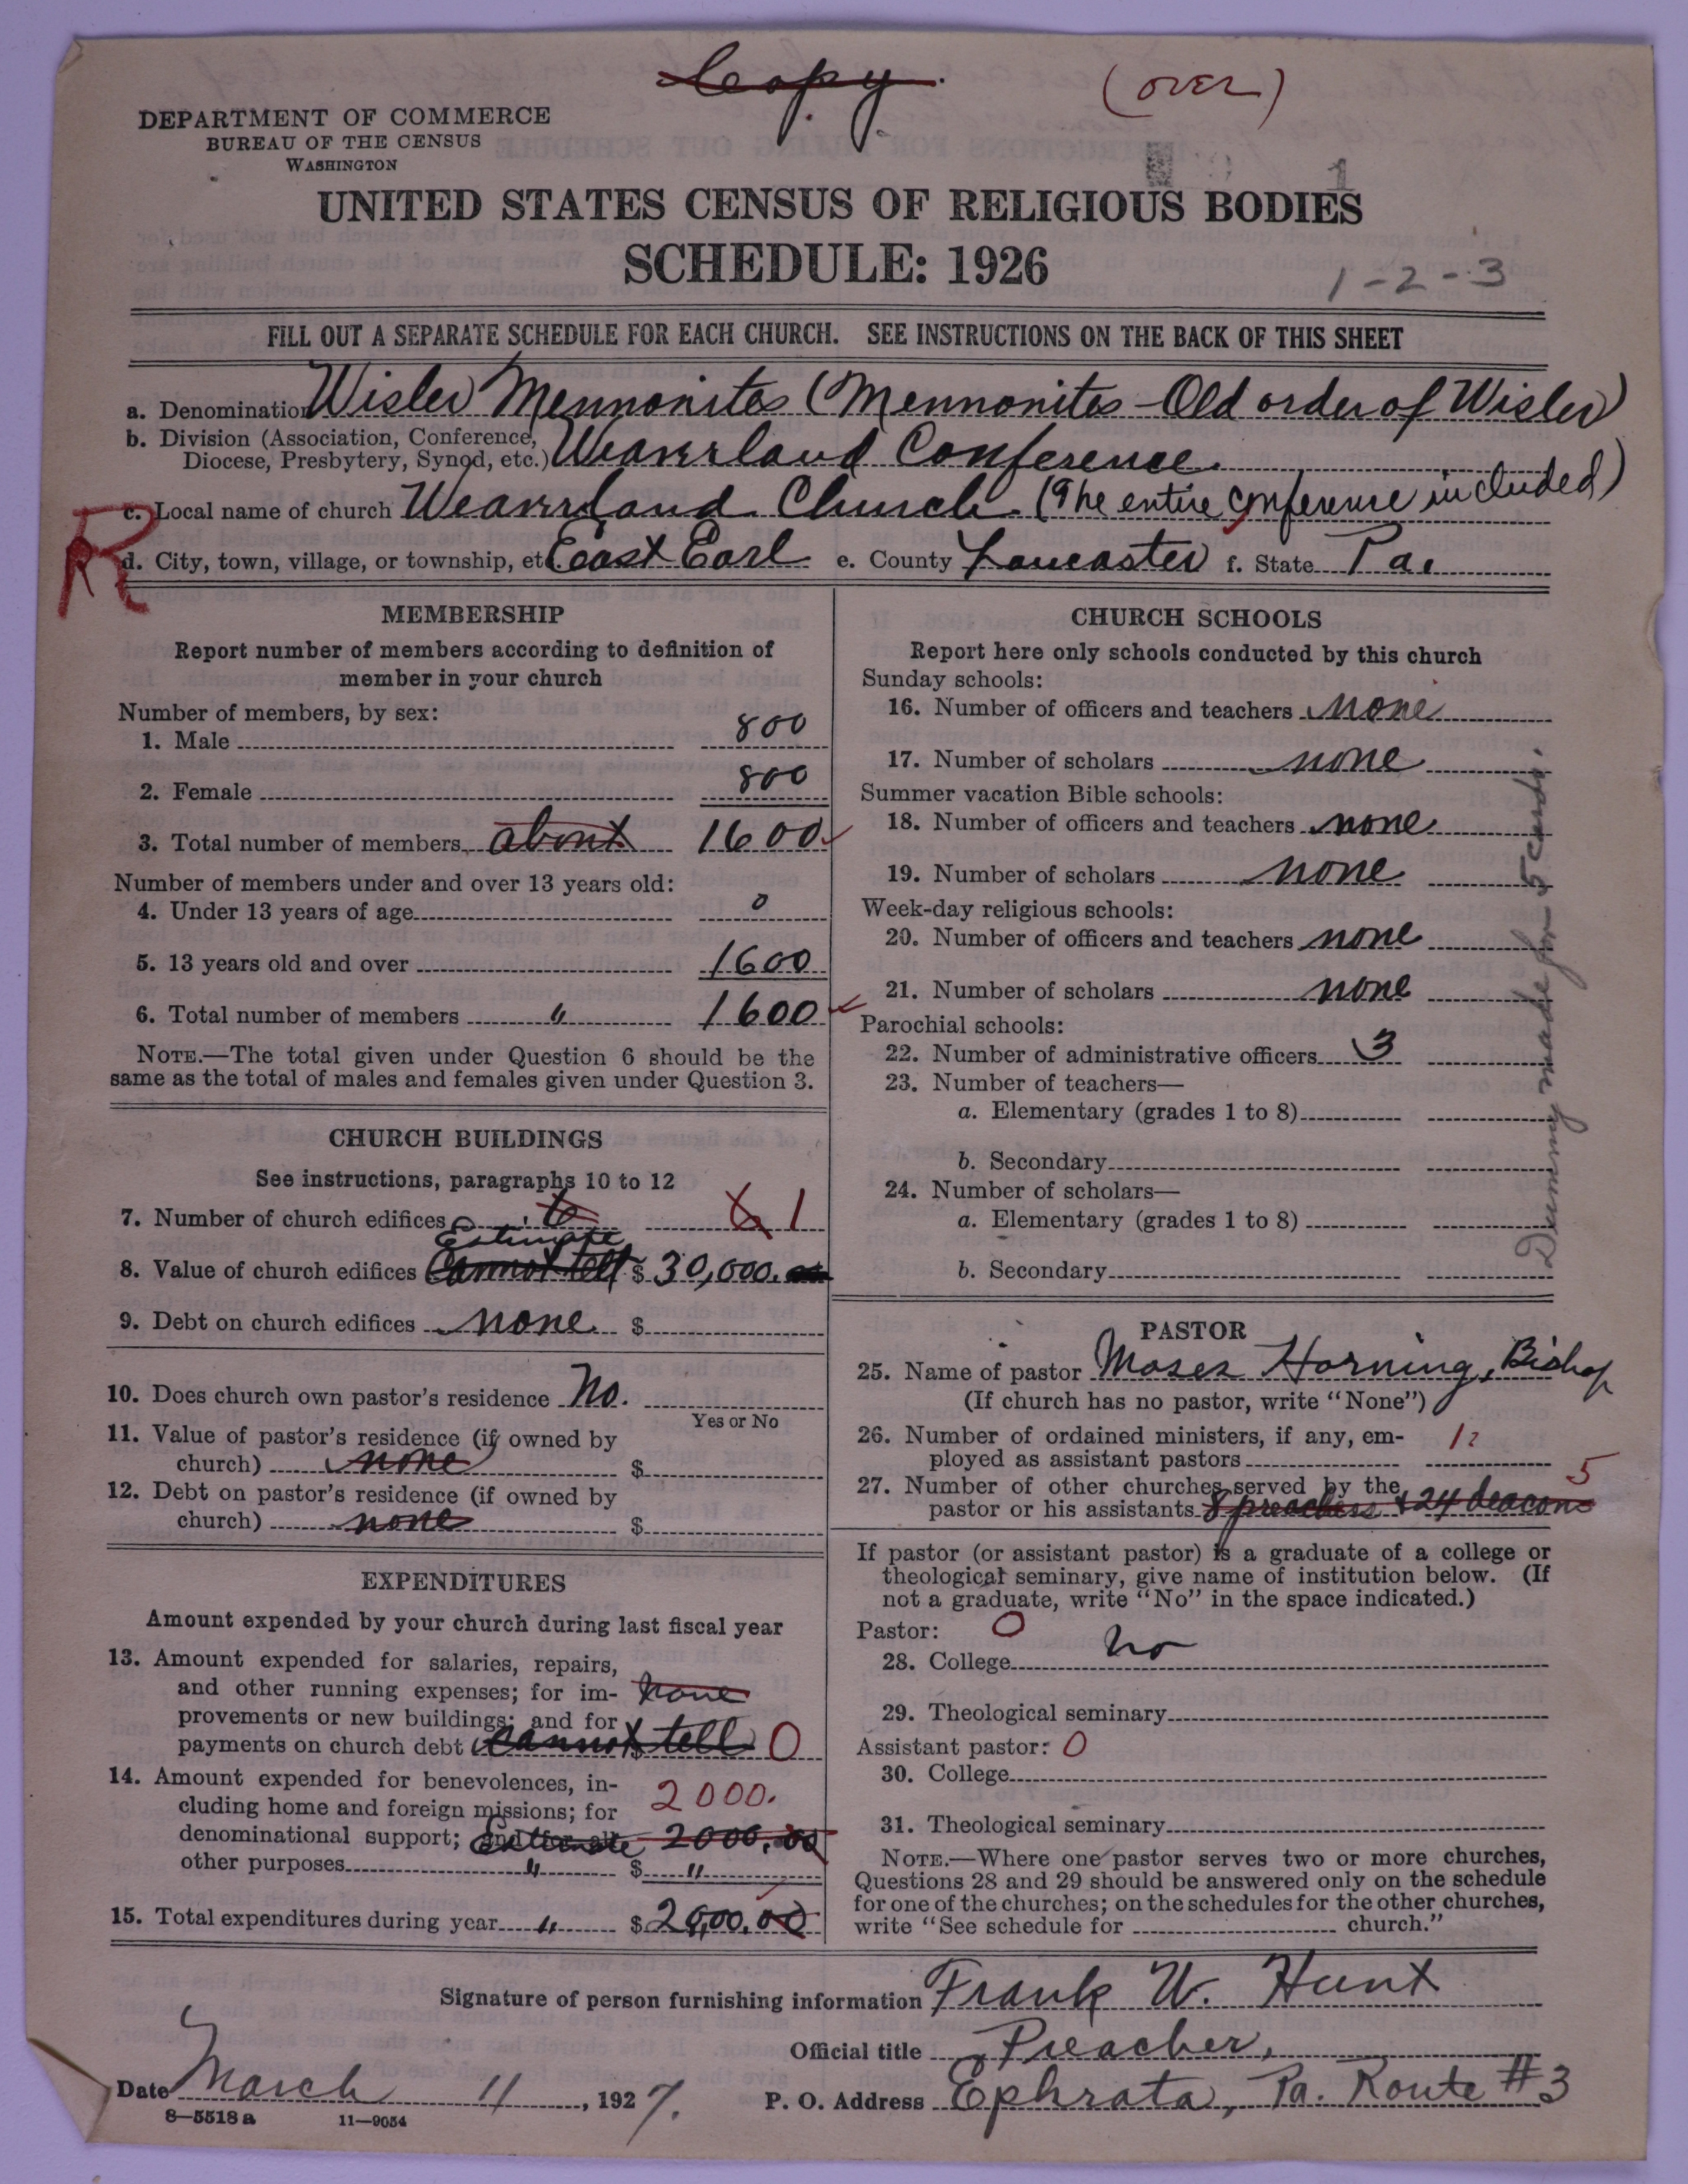 Copy.
(OVER)
DEPARTMENT OF COMMERCE
BUREAU OF THE CENSUS
WASHINGTON
1
UNITED STATES CENSUS OF RELIGIOUS BODIES
SCHEDULE: 1926
1-2-3
FILL OUT A SEPARATE SCHEDULE FOR EACH CHURCH. SEE INSTRUCTIONS ON THE BACK OF THIS SHEET
a. Denomination Wisler Mennonites (Mennonites - Old order of Wisler)
b. Division (Association, Conference, Diocese, Presbytery, Synod, etc.) Weaverland Conference.
c. Local name of church Weaverland Church. (The entire conference included)
R
d. City, town, village, or township, etc. East Earl e. County Lancaster f. State Pa.
MEMBERSHIP
Report number of members according to definition of
member in your church
Number of members, by sex:
1. Male 800
2. Female 800
3. Total number of members about 1600
Number of members under and over 13 years old:
4. Under 13 years of age 0
5. 13 years old and over 1600
6. Total number of members " 1600
NOTE.—The total given under Question 6 should be the
same as the total of males and females given under Question 3.
CHURCH BUILDINGS
See instructions, paragraphs 10 to 12
7. Number of church edifices 6 6 1
Estimate
8. Value of church edifices Cannot tell $ 30,000.00
9. Debt on church edifices none $
10. Does church own pastor's residence No.
Yes or No
11. Value of pastor's residence (if owned by
church) none $
12. Debt on pastor's residence (if owned by
church) none $
EXPENDITURES
Amount expended by your church during last fiscal year
13. Amount expended for salaries, repairs,
and other running expenses; for im- none
provements or new buildings; and for
payments on church debt cannot tell $ 0
14. Amount expended for benevolences, in-
cluding home and foreign missions; for 2000.
denominational support; and for all Estimate 2000.00
other purposes " $ "
15. Total expenditures during year " $ 2000.00
CHURCH SCHOOLS
Report here only schools conducted by this church
Sunday schools:
16. Number of officers and teachers none
17. Number of scholars none
Summer vacation Bible schools:
18. Number of officers and teachers none
19. Number of scholars none
Week-day religious schools:
20. Number of officers and teachers none
21. Number of scholars none
Parochial schools:
22. Number of administrative officers 3
23. Number of teachers—
a. Elementary (grades 1 to 8)
b. Secondary
24. Number of scholars—
a. Elementary (grades 1 to 8)
b. Secondary
Dummy made for 5 cards.
PASTOR
25. Name of pastor Moses Horning, Bishop
(If church has no pastor, write "None")
26. Number of ordained ministers, if any, em-
ployed as assistant pastors
27. Number of other churches served by the 5
pastor or his assistants 8 preachers & 24 deacons
If pastor (or assistant pastor) is a graduate of a college or
theological seminary, give name of institution below. (If
not a graduate, write "No" in the space indicated.)
Pastor: 0
28. College No
29. Theological seminary
Assistant pastor: 0
30. College
31. Theological seminary
NOTE.—Where one pastor serves two or more churches,
Questions 28 and 29 should be answered only on the schedule
for one of the churches; on the schedules for the other churches,
write "See schedule for church."
Signature of person furnishing information Frank W. Hunt
Official title Preacher,
Date March 11, 1927. P. O. Address Ephrata, Pa. Route #3
8—5518 a 11—9054